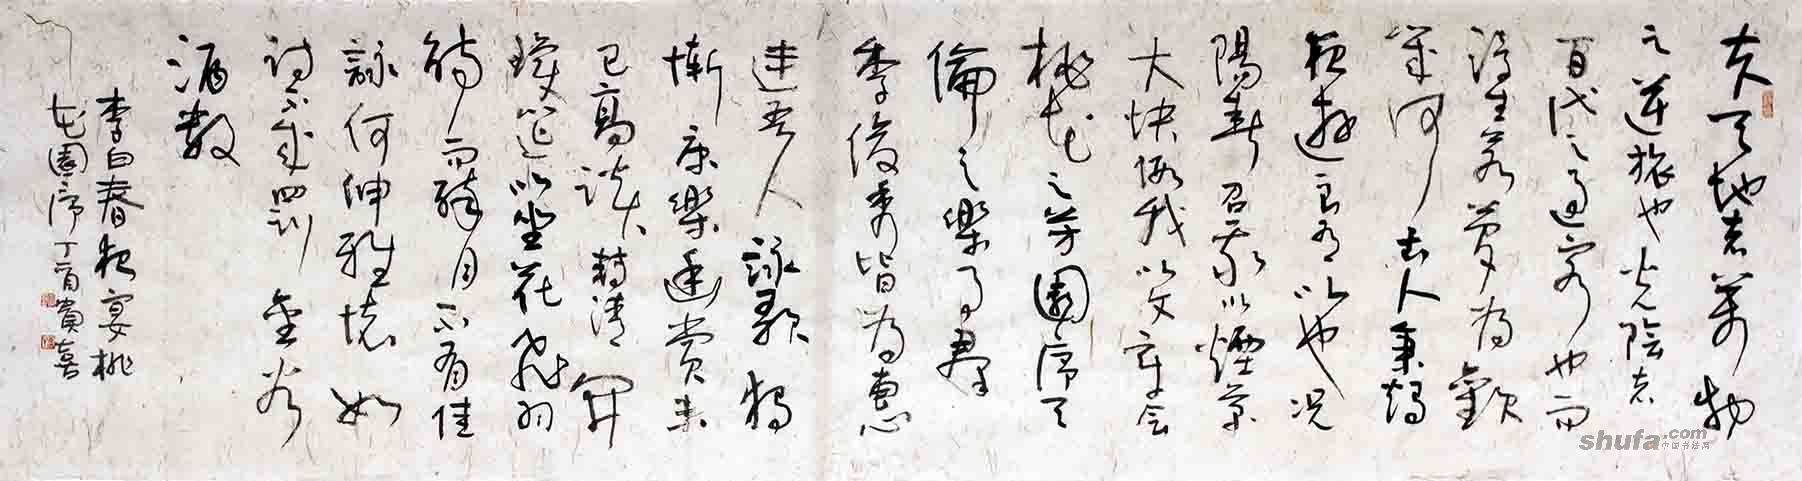 夫天地者萬物
之逆旅也光陰者
百代之過客也而
浮生若夢為歡
幾何古人秉燭
夜遊良有以也況
陽春召我以煙景
大快假我以文章會
桃花之芳園序天
倫之樂事羣
季俊秀皆為惠
連吾人詠歌獨
慚康樂幽賞未
已高談轉清開
瓊筵以坐花飛羽
觴而醉月不有佳
詠何伸雅懷如
詩不成罰金谷
酒數
李白春夜宴桃
花園序丁酉貴喜
shufa.com
中国书法网